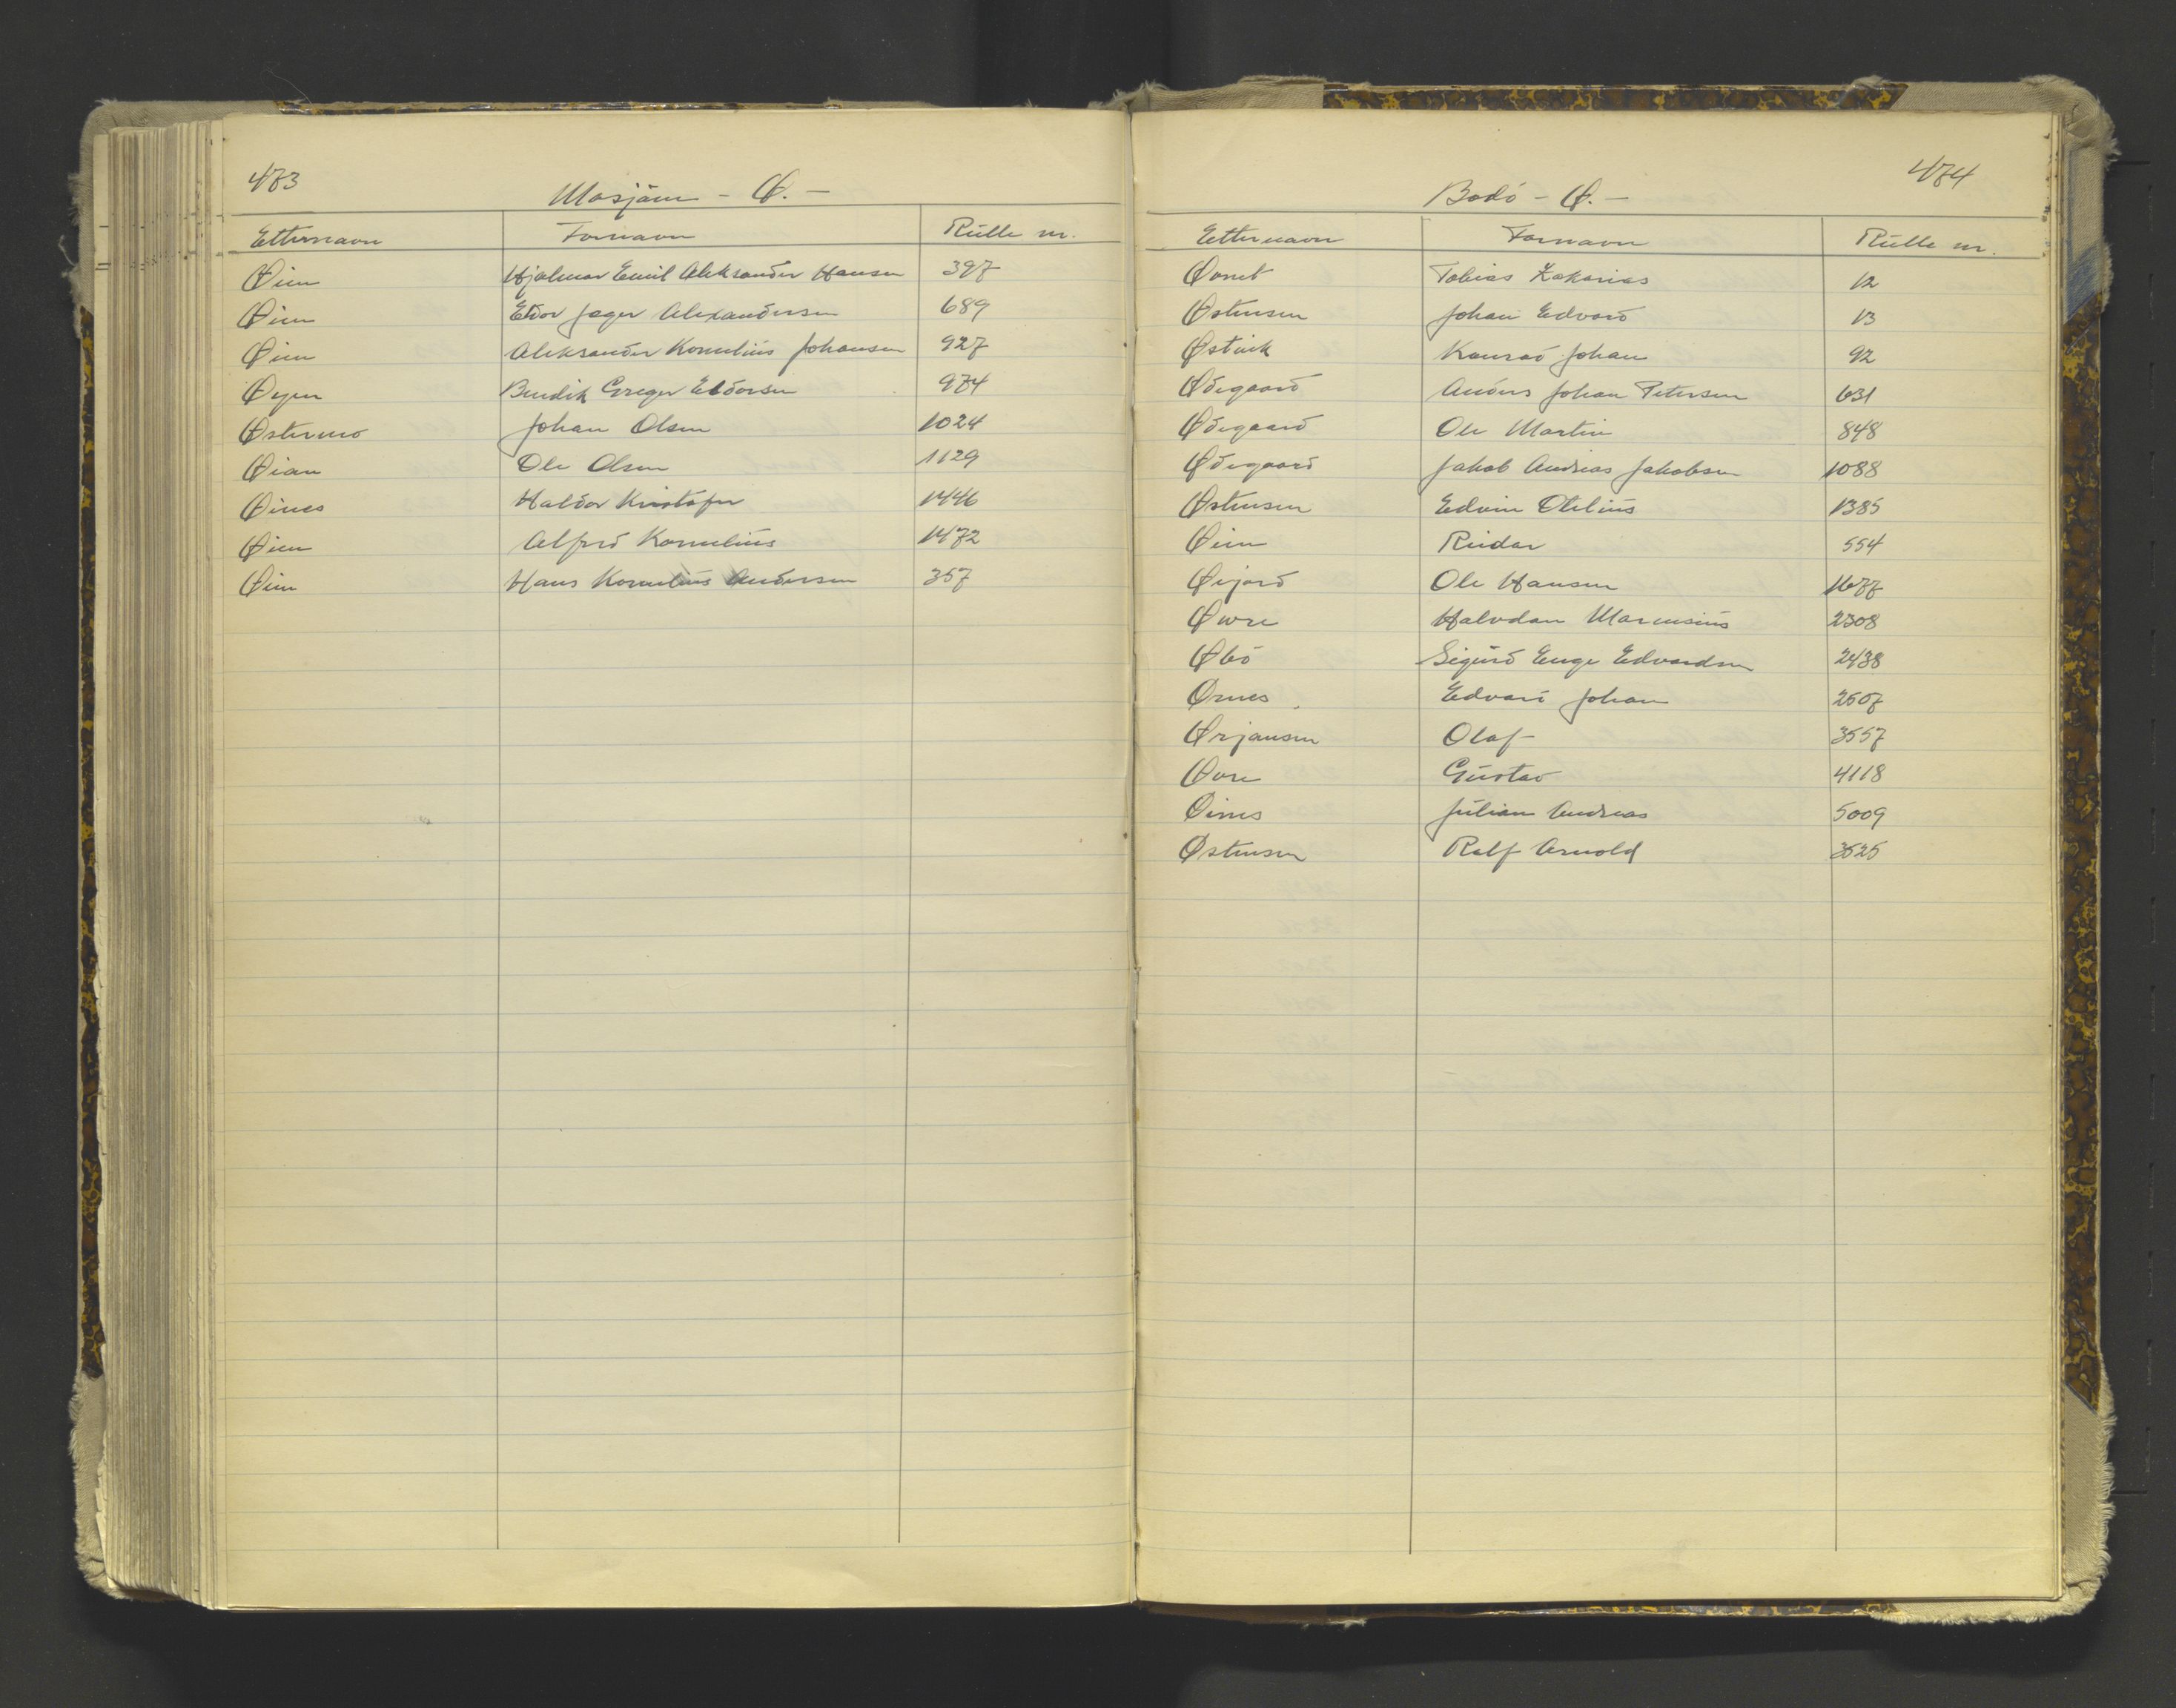 473
Mosjøen - Ø. -
Etternavn Fornavn Rulle nr.
Øien Hjalmar Emil Aleksander Hansen 397
Øien Eldor Jæger Alexandersen 689
Øien Aleksander Kornelius Johansen 927
Øyen Bendik Greger Eldorsen 974
Østermo Johan Olsen 1024
Øian Ole Olsen 1129
Øines Haldor Kristofer 1446
Øien Alfred Kornelius 1472
Øien Hans Kornelius Andersen 357
474
Bodø - Ø. -
Etternavn Fornavn Rulle nr.
Tobias Zakarias 12
Østensen Johan Edvard 13
Østvik Konrad Johan 92
Ødegaard Anders Johan Petersen 631
Ødegaard Ole Martin 848
Ødegaard Jakob Andreas Jakobsen 1088
Østensen Edvin Otelius 1385
Øien Reidar 554
Øijord Ole Hansen 1677
Øwre Halvdan Marensius 2308
Øbø Sigurd Enge Edvardsen 2438
Ørnes Edvard Johan 2507
Ørjansen Olaf 3557
Øvre Gustav 4118
Øines Julian Andreas 5009
Østensen Ralf Arnold 3525